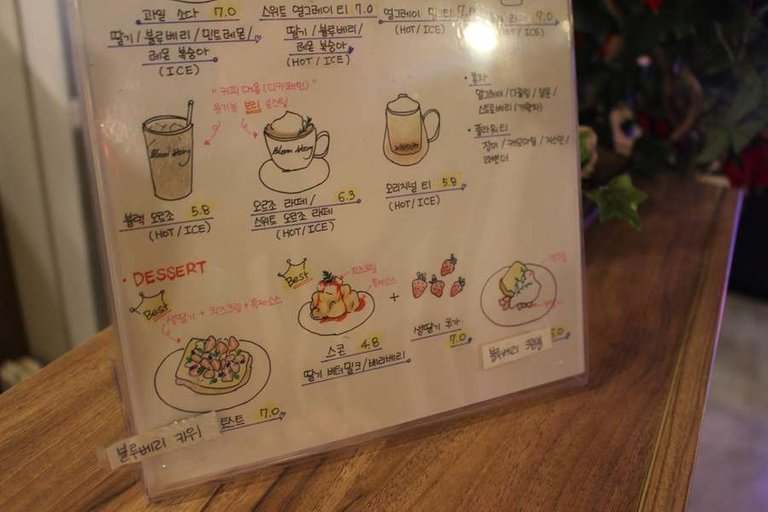 과일 소다 7.0
딸기/블루베리/민트레몬/
레몬 복숭아
(ICE)
스위트 얼그레이 티 7.0
딸기/블루베리/
레몬 복숭아
(HOT/ICE)
얼그레이 7.0
(HOT/ICE)
7.0
(HOT/ICE)
"커피 대용(디카페인)"
유기농 보리 로스팅
Bloom Hong
Bloom Hong
블랙 오르조 5.8
(HOT/ICE)
오르조 라떼/ 6.3
스위트 오르조 라떼
(HOT/ICE)
오리지널 티 5.8
(HOT/ICE)
• 홍차
얼그레이/다즐링/
스트로베리
• 플라워티
장미/캐모마일/자스민/
라벤더
• DESSERT
Best
생딸기 + 치즈크림 + 특제소스
Best
치즈크림
특제소스
+
스콘 4.8
딸기 버터밀크/
생딸기 추가
7.0
블루베리 5.0
블루베리 키위 토스트 7.0